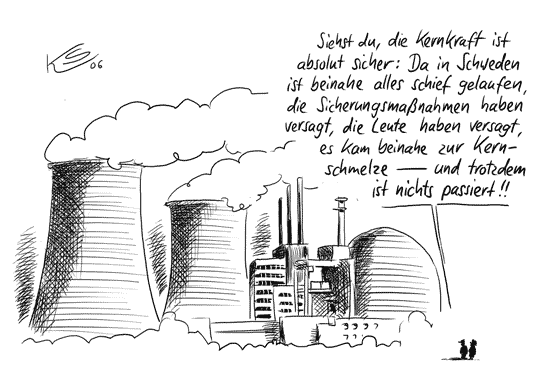 06
Siehst du, die Kernkraft ist
absolut sicher: Da in Schweden
ist beinahe alles schief gelaufen,
die Sicherungsmaßnahmen haben
versagt, die Leute haben versagt,
es kam beinahe zur Kern-
schmelze — und trotzdem
ist nichts passiert!!